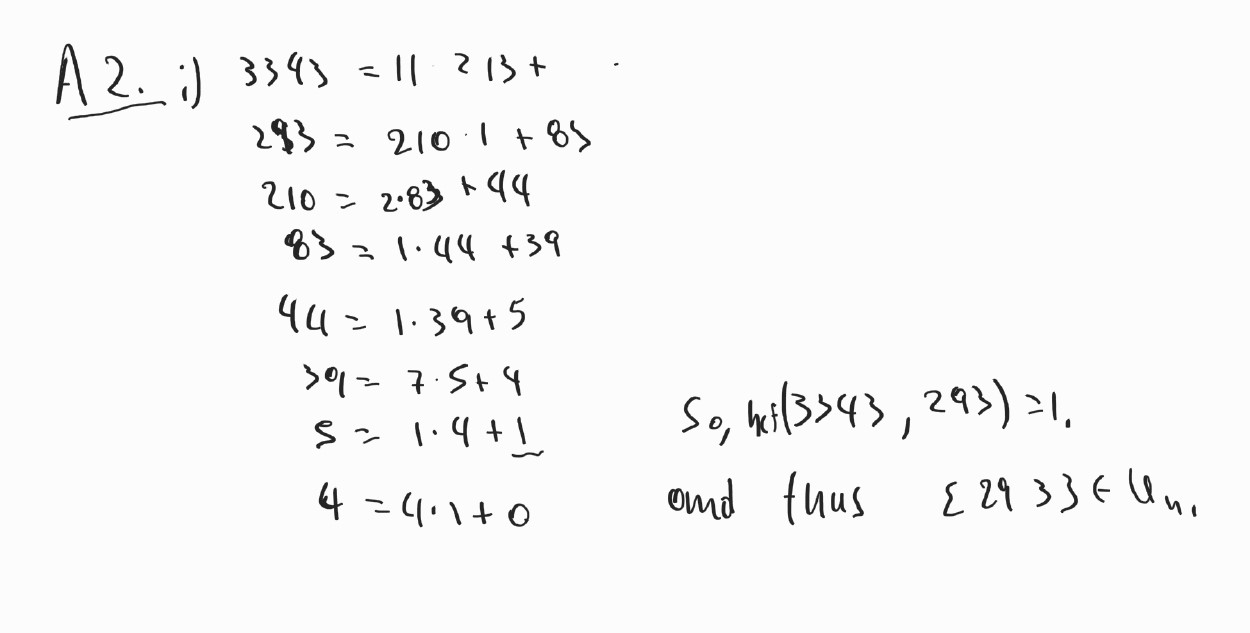 A2. i) 3343 = 11 213 +
293 = 210 · 1 + 83
210 = 2·83 + 44
83 = 1·44 + 39
44 = 1·39 + 5
39 = 7·5 + 4
5 = 1·4 + 1
4 = 4·1 + 0
So, hcf(3343, 293) = 1.
and thus {293} ∈ Un.